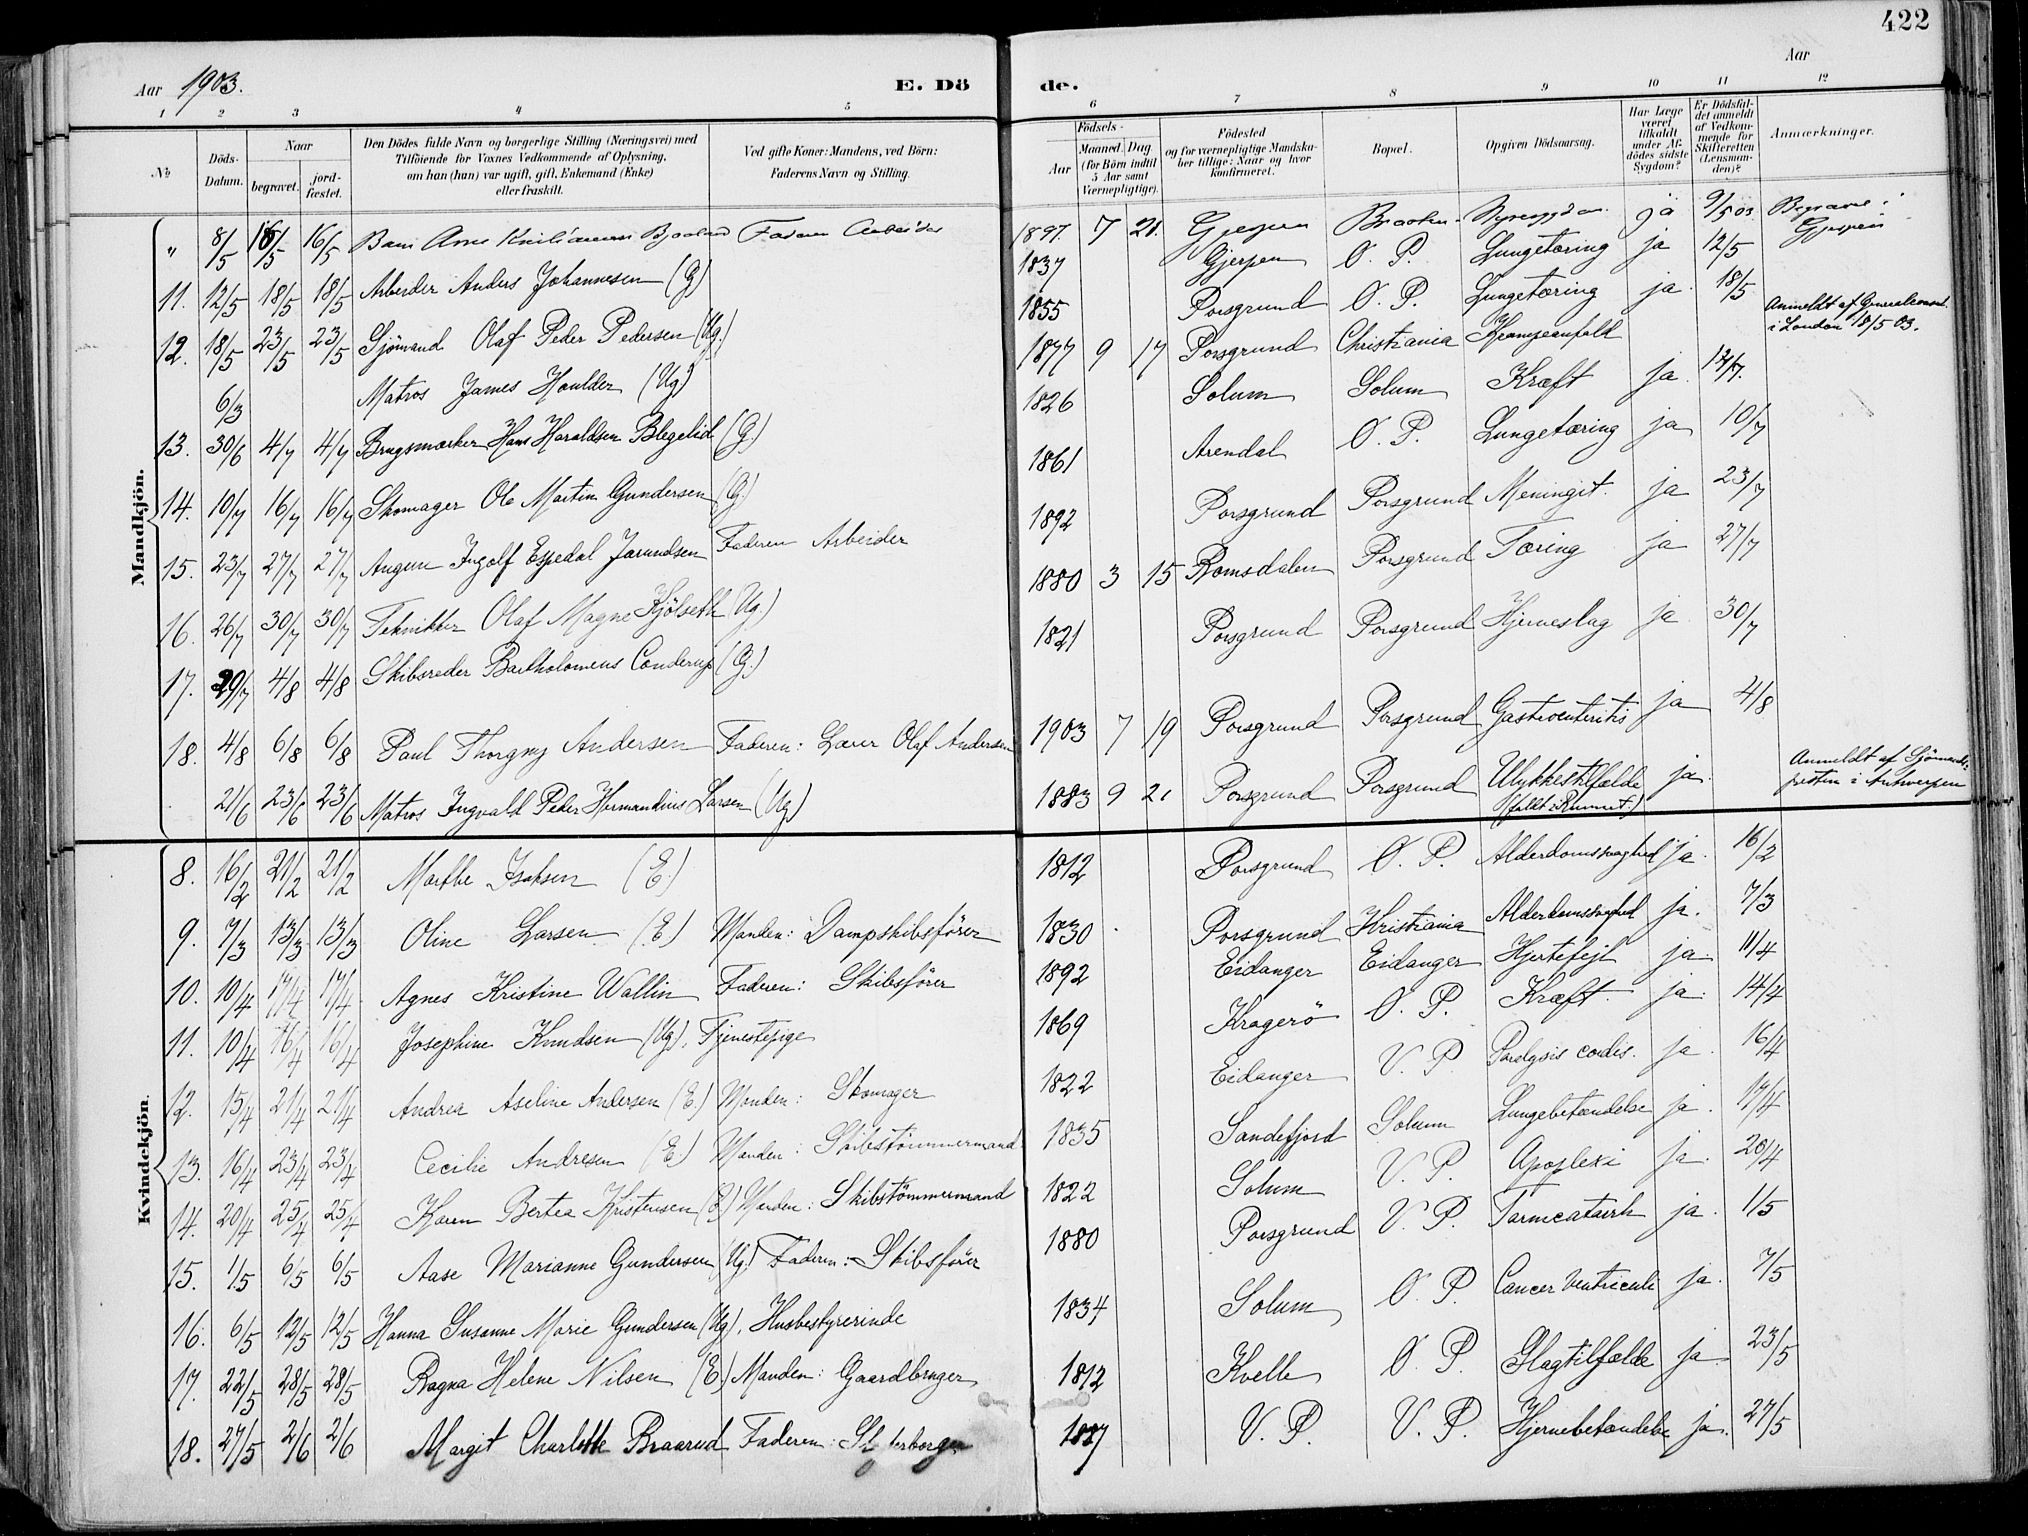 422
Aar 1903. E. Dö de. Aar
1 2 3 4 5 6 7 8 9 10 11 12
№ Döds-Datum. Naar begravet. jord-fæstet. Den Dödes fulde Navn og borgerlige Stilling (Næringsvei) med Tilföiende for Voxnes Vedkommende af Oplysning, om han (hun) var ugift, gift, Enkemand (Enke) eller fraskilt. Ved gifte Koner: Mandens, ved Börn: Faderens Navn og Stilling. Födsels- Aar Maaned. Dag. (for Börn indtil 5 Aar samt Værnepligtige). Födested og for værnepligtige Mandskaber tillige: Naar og hvor konfirmeret. Bopæl. Opgiven Dödsaarsag. Har Læge været tilkaldt under Afdödes sidste Sygdom? Er Dödsfaldet anmeldt af Vedkommende for Skifteretten (Lensmanden)? Anmærkninger.
Mandkjön.
" 8/5 16/5 16/5 Barn Arne Faderen Arbeider 1897. 7 21. Gjerpen ja 9/5 03 Begravet i Gjerpen
11. 12/5 18/5 18/5 Arbeider Anders Johannesen (G) 1837 Gjerpen Ö. P. Lungetæring ja 12/5
12. 18/5 23/5 23/5 Sjömand Olaf Peder Pedersen (Ug.) 1855 Porsgrund Ö. P. Lungetæring ja 18/5
6/3 Matros James Houlder (Ug) 1877 9 17 Porsgrund Christiania Krampeanfald Anmeldt af Generalconsul. i London 18/5 03.
13. 30/6 4/7 4/7 Brugsmærker Hans Haraldsen Blegelid (G.) 1826 Solum Solum Kræft ja 14/7.
14. 10/7 16/7 16/7 Skomager Ole Martin Gundersen (G.) 1861 Arendal Ö. P. Lungetæring ja 10/7
15. 23/7 27/7 27/7 Ingolf Espedal Jarundsen Faderen Arbeider 1892 Porsgrund Porsgrund Meningit. ja 23/7
16. 26/7 30/7 30/7 Tekniker Olaf Magne Kjölseth (Ug.) 1880 3 15 Romsdalen Porsgrund Tæring ja 27/7
17. 29/7 4/8 4/8 Skibsreder Bartholomeus Conderup (G.) 1821 Porsgrund Porsgrund Hjerneslag ja 30/7
18. 4/8 6/8 6/8 Paul Thorgny Andersen Faderen: Lærer Olaf Andersen 1903 7 19 Porsgrund Porsgrund Gastroenteritis ja 4/8
21/6 23/6 23/6 Matros Ingvald Peder Hermandius Larsen (Ug) 1883 9 21 Porsgrund Porsgrund Ulykkestilfælde (faldt i Rummet.) ja. Anmeldt af Sjömandspresten i Antwerpen
Kvindekjön.
8. 16/2 21/2 21/2 Marthe Isaksen (E.) 1812 Porsgrund Ö. P. Alderdomssvaghed ja. 16/2
9. 7/3 13/3 13/3 Oline Larsen (E.) Manden: Dampskibsförer 1830 Porsgrund Kristiania Alderdomssvaghed ja. 7/3
10. 10/4 17/4 17/4 Agnes Kristine Wallin Faderen: Skibsförer 1892 Eidanger Eidanger Hjertefejl ja 11/4
11. 10/4 16/4 16/4 Josephine Knudsen (Ug). Tjenestepige 1869 Kragerö Ö. P. Kræft ja. 14/4
12. 15/4 21/4 21/4 Andrea Aseline Andersen (E.) Manden: Skomager 1822 Eidanger V. P. Paralysis cordis. ja. 16/4
13. 16/4 23/4 23/4 Cecilie Andresen (E.) Manden: Skibstömmermand 1835 Sandefjord Solum Lungebetændelse ja. 17/4
14. 20/4 25/4 25/4 Karen Bertea Kristensen (E) Manden: Skibstömmermand 1822 Solum V. P. Apoplexi ja. 20/4
15. 1/5 6/5 6/5 Aase Marianne Gundersen (Ug.) Faderen: Skibsförer 1880 Porsgrund V. P. Tarmcatarrh ja. 1/5
16. 6/5 12/5 12/5 Hanna Susanne Marie Gundersen (Ug), Husbestyrerinde 1834 Solum Ö. P. Cancer ventriculi ja. 7/5
17. 22/5 28/5 28/5 Ragna Helene Nilsen (E.) Manden: Gaardbruger 1812 Kvelle Ö. P. Slagtilfælde ja. 23/5
18. 27/5 2/6 2/6 Margit Charlotte Braarud Faderen: V. P. V. P. Hjernebetændelse ja. 27/5